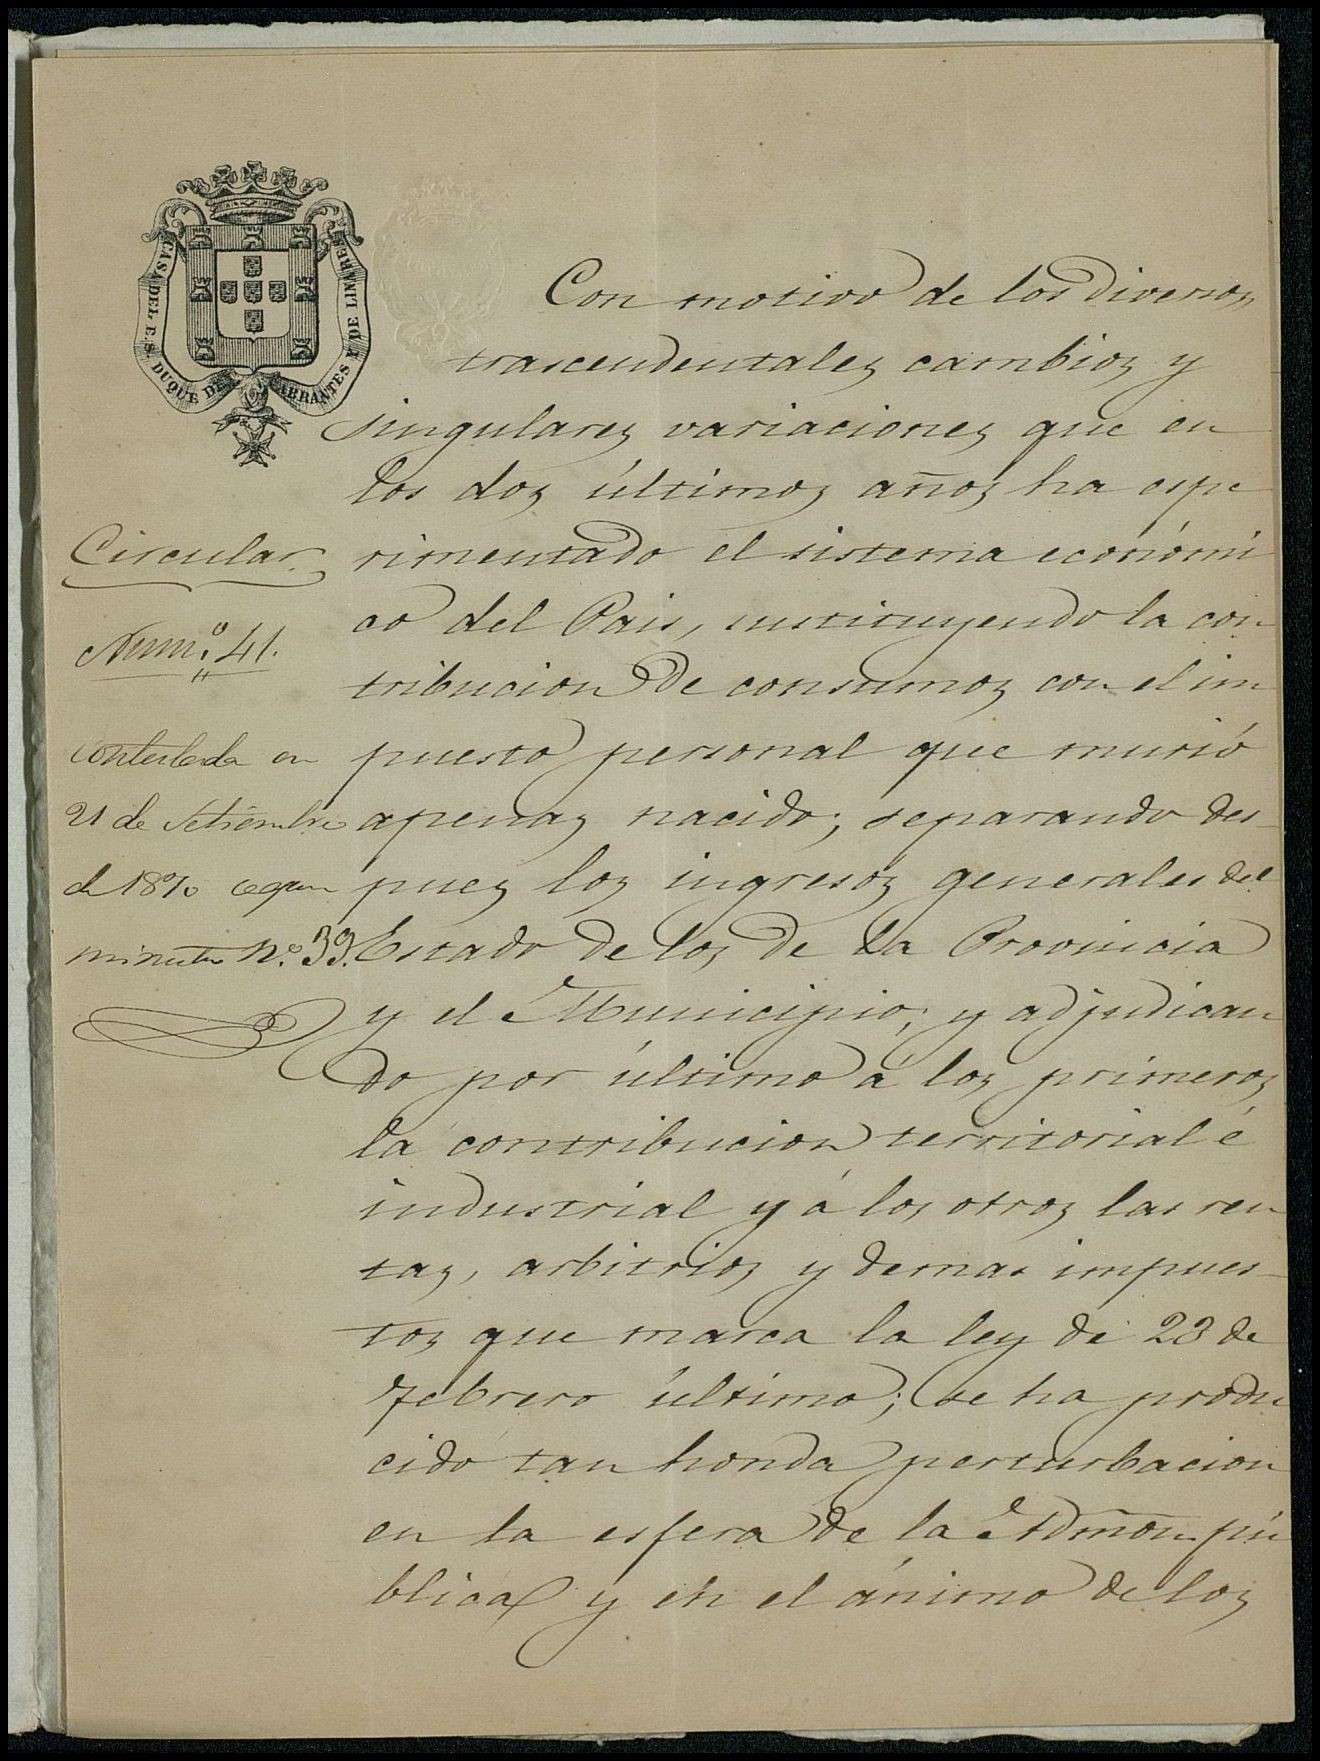 CASA DEL E. S. DUQUE DE ABRANTES Y DE LINARES
Circular.
Num.º 41.
Contestada en
21 de Setiembre
de 1870 segun
minuta N.º 39.
Con motivo de los diversos,
trascendentales cambios y
singulares variaciones que en
los dos últimos años ha espe
rimentado el sistema económi
co del Pais, sustituyendo la con
tribucion de consumos con el im
puesto personal que murió
apenas nacido; separando des-
pues los ingresos generales del
Estado de los de la Provincia
y el Municipio; y adjudican
do por último á los primeros
la contribucion territorial é
industrial y á los otros las ren
tas, arbitrios y demas impues-
tos que marca la ley de 23 de
Febrero último; se ha produ
cido tan honda perturbacion
en la esfera de la Admon. pú
blica y en el ánimo de los